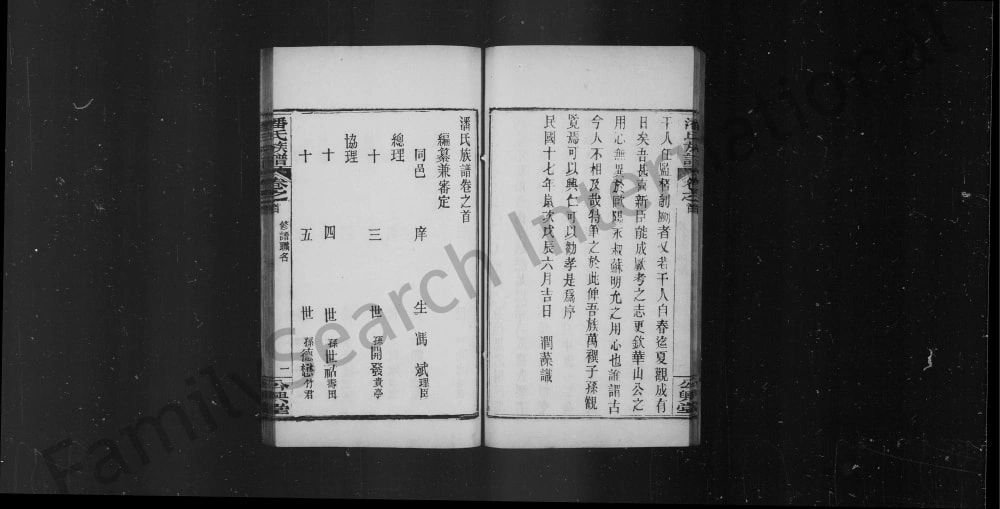 干人任監督剞劂者又若干人自春迄夏觀成有
日矣吾甚喜新臣能成厥考之志更欽華山公之
用心無異於歐陽永叔蘇明允之用心也誰謂古
今人不相及哉特筆之於此俾吾族萬禩子孫觀
覽焉可以興仁可以勸孝是為序
民國十七年歲次戊辰六月吉日 潤藻識
潘氏族譜 卷之首
公興堂
潘氏族譜卷之首
編纂兼審定
同邑庠生馮斌理臣
總理
十三世孫開發貴亭
協理
十四世孫世祐壽田
十五世孫德懋竹君
潘氏族譜 卷之首 修譜職名 一
公興堂
FamilySearch International